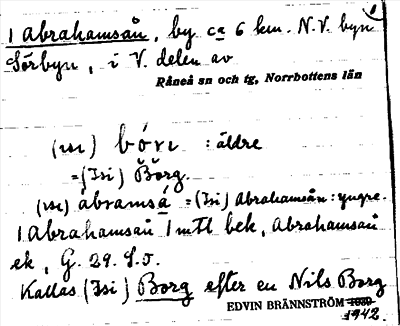 1 Abrahamsån, by ca 6 km. N.V. byn
Sörbyn, i V. delen av
Råneå sn och tg, Norrbottens län
: äldre
= (Isi) Borg.
= (Isi) Abrahamsån : yngre.
1 Abrahamsån 1 mtl bek, Abrahamsån
ek, G. 29. S.5.
Kallas (Isi) Borg efter en Nils Borg
EDVIN BRÄNNSTRÖM
1942